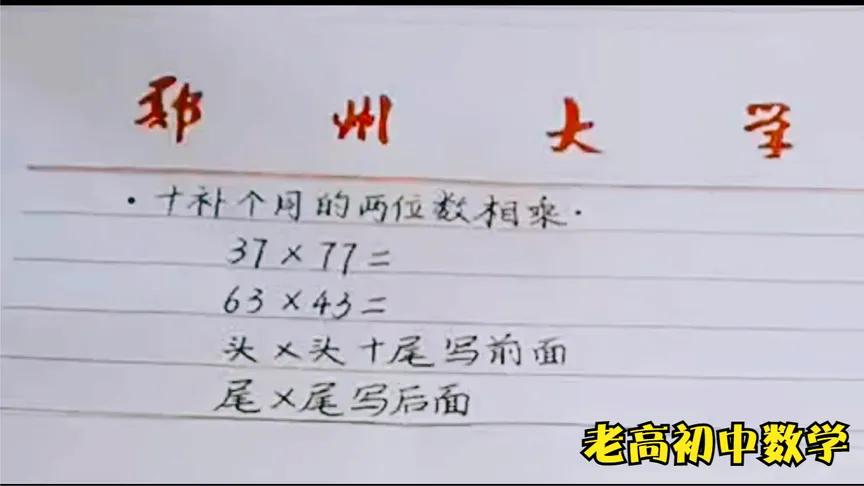 郑州大学
·十补个同的两位数相乘·
37×77=
63×43=
头×头+尾写前面
尾×尾写后面
老高初中数学